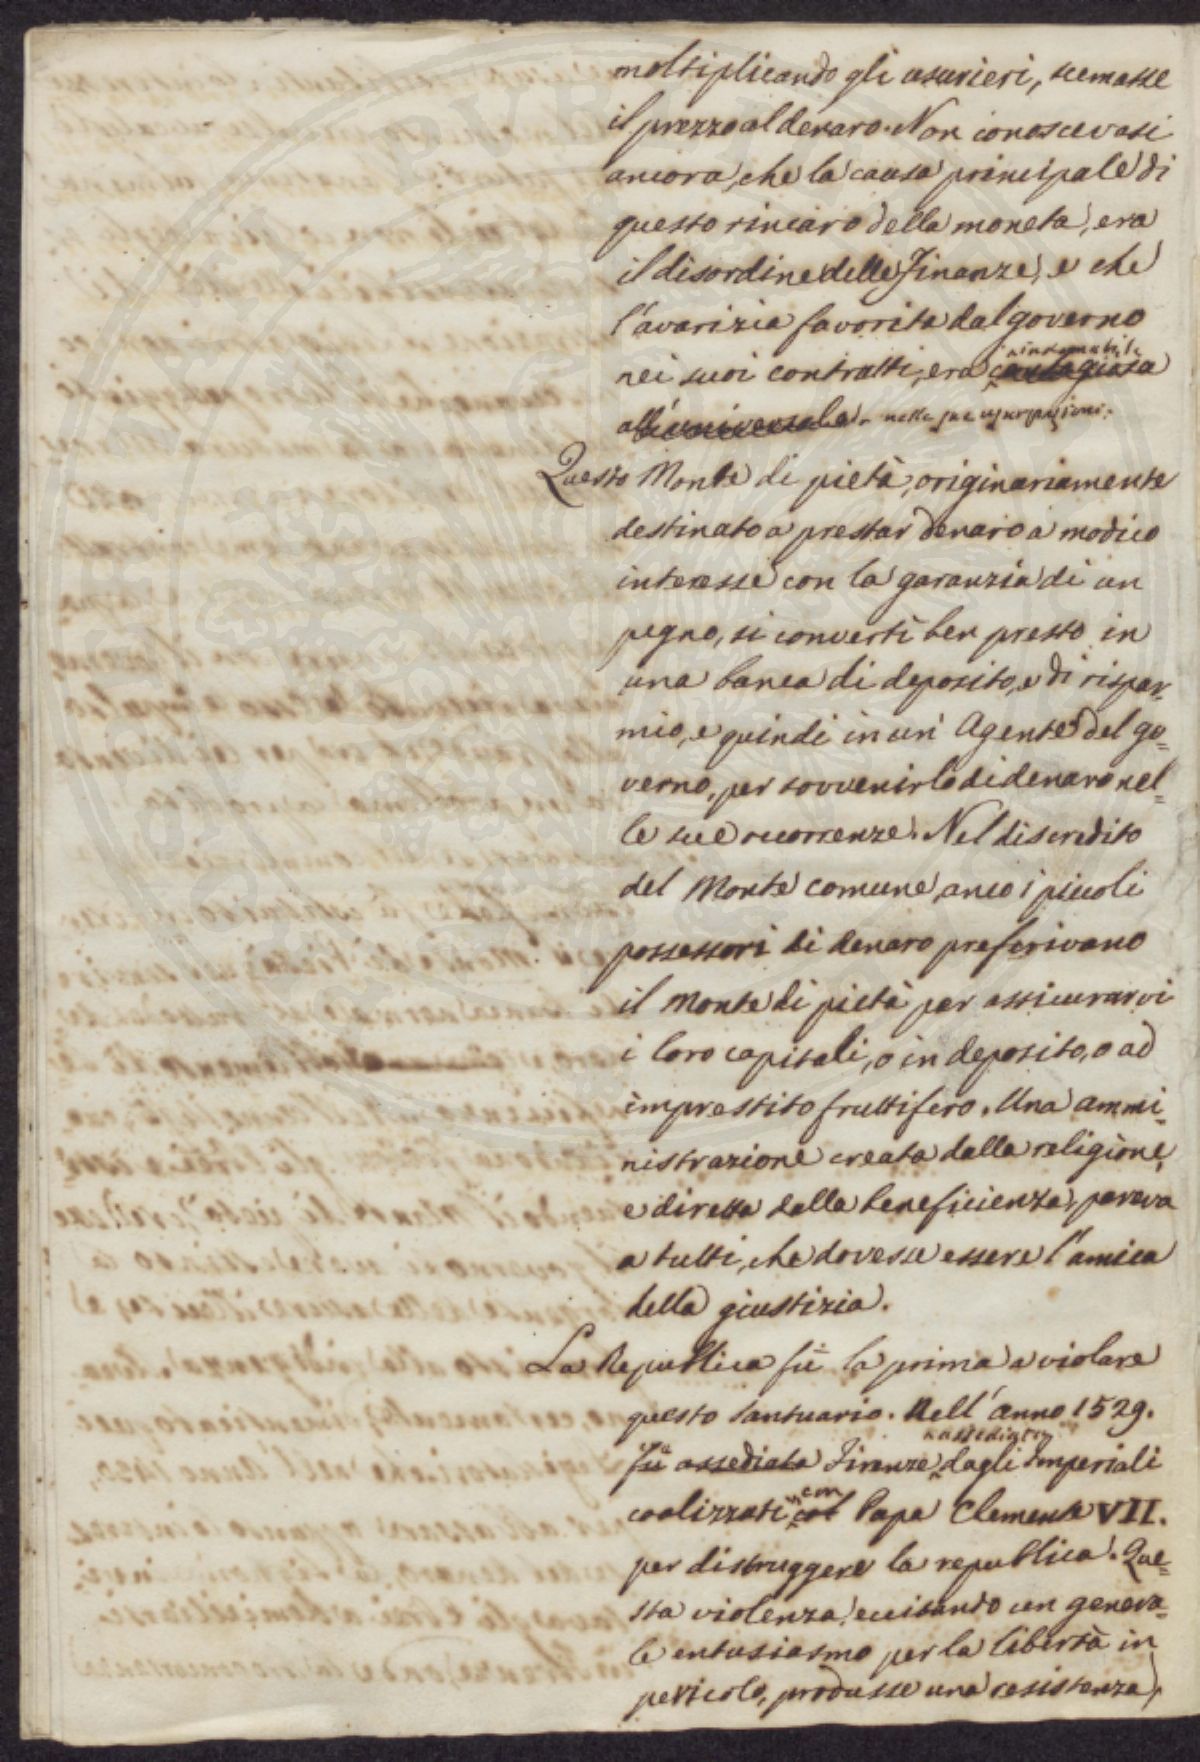 moltiplicando gli usurieri, scemasse
il prezzo al denaro. Non conoscevasi
ancora, che la causa principale di
questo rincaro della moneta, era
il disordine delle Finanze, e che
l'avarizia favorita dal governo
nei suoi contratti, era contagiosa
all'universale. nelle sue usurpazioni.
Questo Monte di pietà, originariamente
destinato a prestar denaro a modico
interesse con la garanzia di un
pegno, si convertì ben presto in
una banca di deposito, e di rispar-
mio, e quindi in un' Agente del go=
verno, per sovvenirlo di denaro nel=
le sue occorrenze. Nel discredito
del Monte comune, anco i piccoli
possessori di denaro preferivano
il Monte di pietà per assicurarvi
i loro capitali, o in deposito, o ad
imprestito fruttifero. Una ammi=
nistrazione creata dalla religione,
e diretta dalla beneficienza, pareva
a tutti, che dovesse essere l'amica
della giustizia.
La Republica fù la prima a violare
questo santuario. Nell'anno 1529.
fù assediata Firenze dagli Imperiali
coalizzati col con Papa Clemente VII.
per distruggere la republica. Que=
sta violenza, eccitando un genera=
le entusiasmo per la libertà in
pericolo, produsse una resistenza,